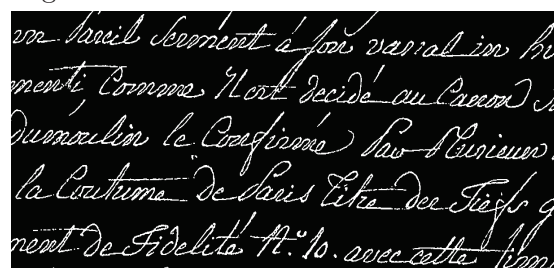 un Pareil Serment à son vassal in
menti, Comme Il est decidé au Canon
dumoulin le Confirme Par Plusieurs
la Coutume de Paris Titre des Fiefs
ment de Fidelité N.º 10. avec cette